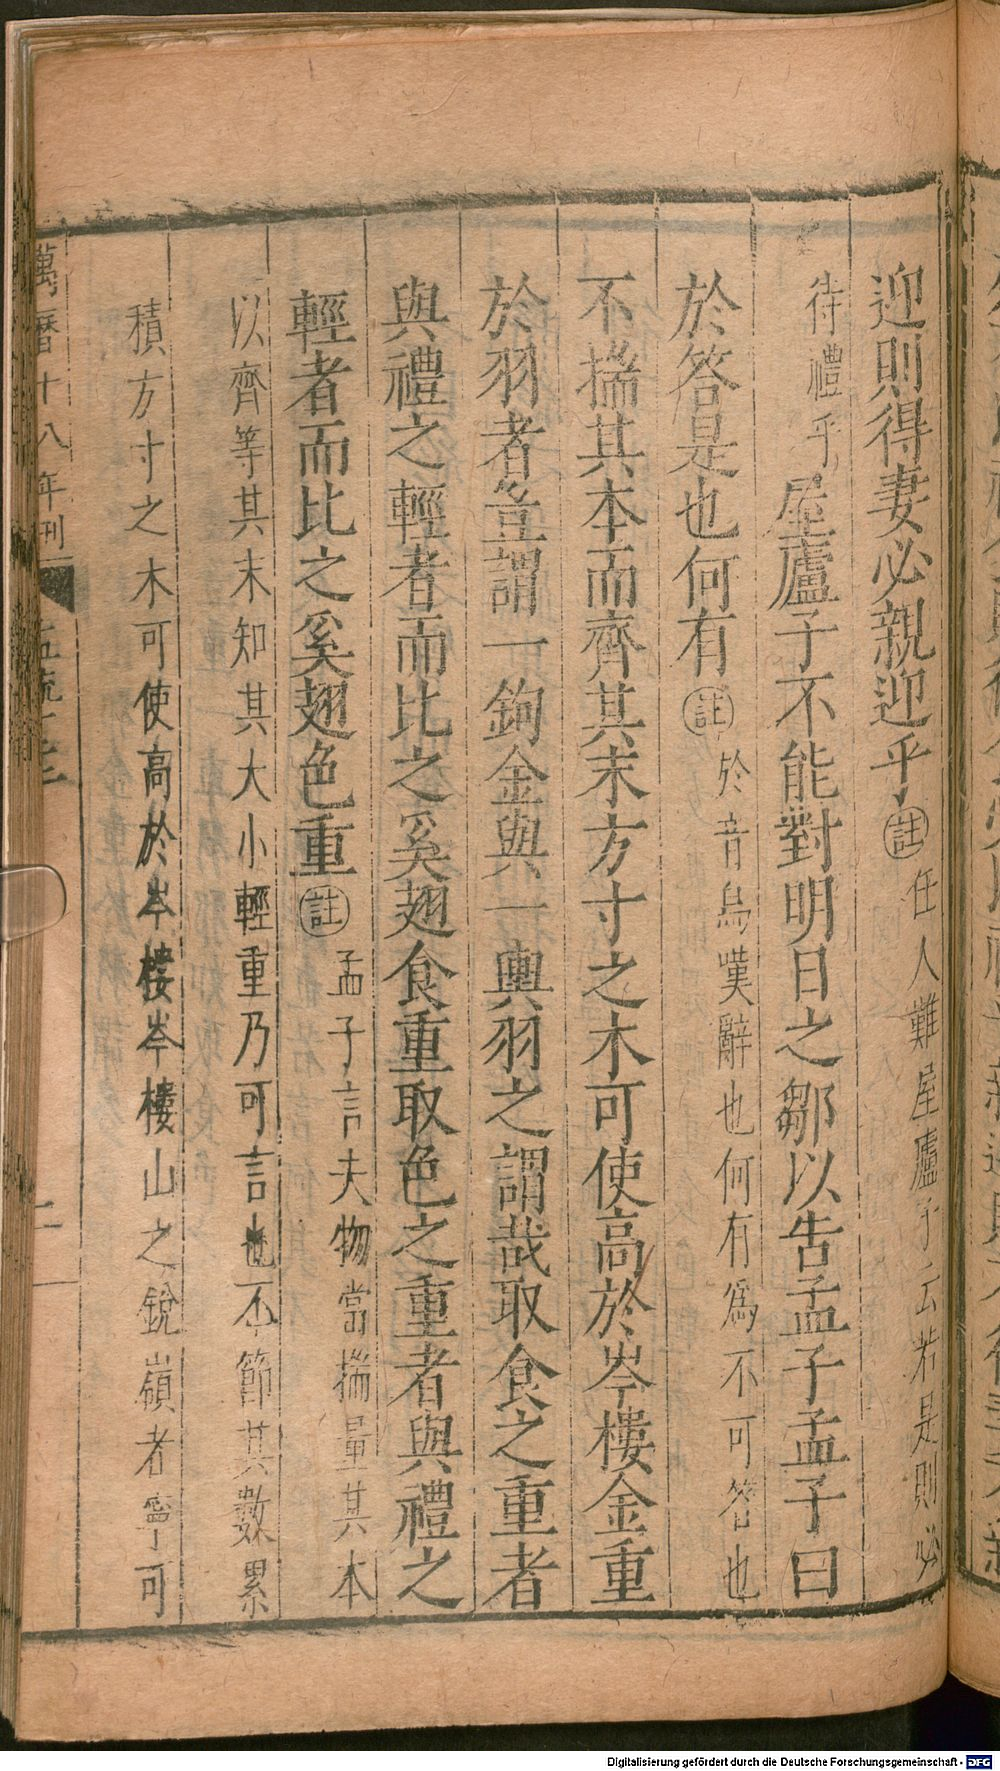 迎則得妻必親迎乎㊟任人難屋廬子云若是則必
待禮乎屋廬子不能對明日之鄒以告孟子孟子曰
於答是也何有㊟於音烏嘆辭也何有為不可答也
不揣其本而齊其末方寸之木可使高於岑樓金重
於羽者豈謂一鉤金與一輿羽之謂哉取食之重者
與禮之輕者而比之奚翅食重取色之重者與禮之
輕者而比之奚翅色重㊟孟子言夫物當揣量其本
以齊等其末知其大小輕重乃可言也不節其數累
積方寸之木可使高於岑樓岑樓山之銳嶺者寧可
萬曆十八年刊 二
Digitalisierung gefördert durch die Deutsche Forschungsgemeinschaft - DFG